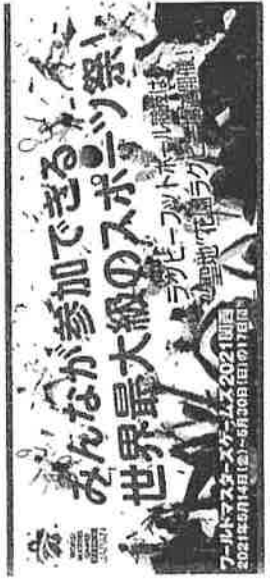 みんなが参加できる
世界最大級のスポーツ祭!
ラグビーフットボール競技は
聖地"花園ラグビー場"で開催!
ワールドマスターズゲームズ2021関西
2021年5月14日(金)~5月30日(日)の17日間